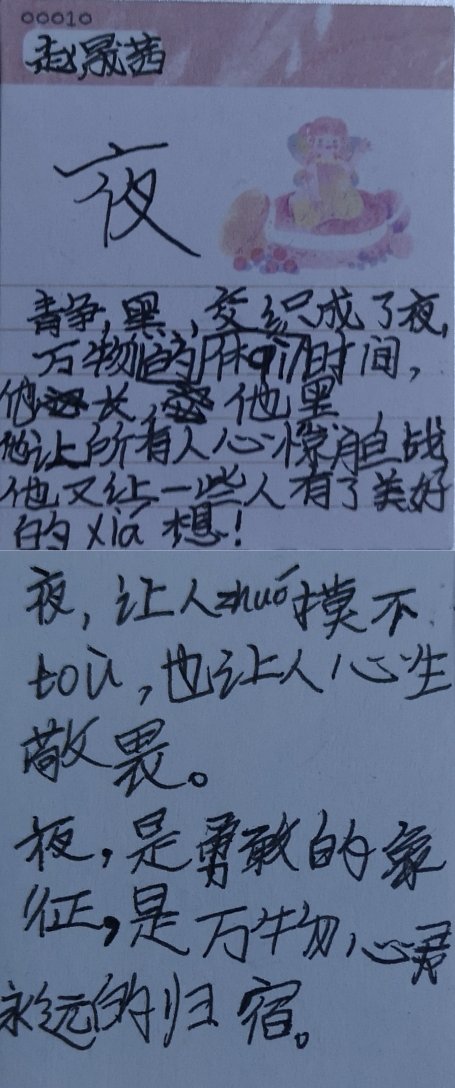 00010
赵晟茜
夜
青争,黑,交织成了夜,
万物的休qi时间,
他长,他黑
他让所有人心惊胆战
他又让一些人有了美好
的xiá想!
夜,让人zhuó摸不
toù,也让人心生
敬畏。
夜,是勇敢的象
征,是万物心灵
永远的归宿。